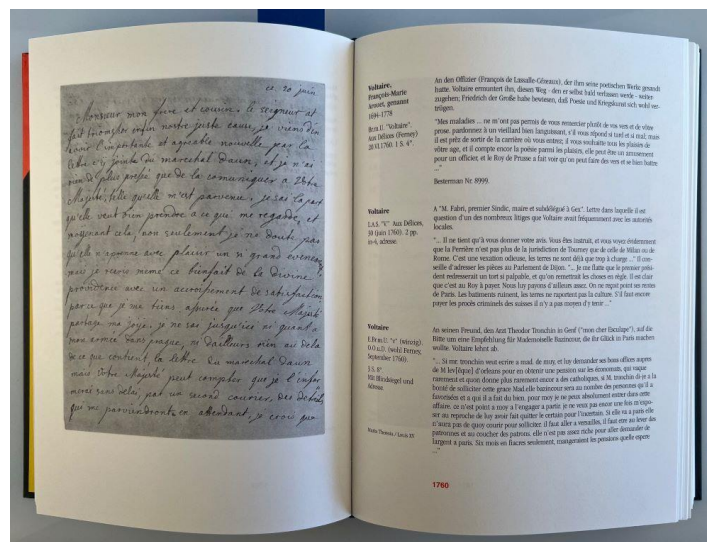 ce 20 juin
Monsieur mon frere et cousin. le seigneur at
fait triompher enfin nostre juste cause, je viens d'en
recevoir l'importante et agreable nouvelle par la
lettre cy jointe du marechal Daun, et je n'ai
rien de plus pressé que de la comuniquer a Vôtre
Majesté, telle qu'elle m'est parvenue, je sai la part
qu'elle veut bien prendre a ce que me regarde, et
moyenant cela, non seulement je ne doute pas
qu'elle n'aprenne avec plaisir un si grand evenement
mais je recois meme ce bienfait de la divine
providence avec un accroissement de satisfaction
parce que je me tiens assurée que Vôtre Majesté
partage ma joye. je ne sai jusqu'ici ni quant a
mon armée dans prague, ni d'ailleurs rien au dela
de ce que contient la lettre du marechal Daun
mais Vôtre Majesté peut compter que je l'infor
merai sans delai, par un second courier, des détails
qui me parviendront, en attendant, je crois que
Voltaire,
François-Marie
Arouet, genannt
1694-1778
Br.m.U. "Voltaire".
Aux Délices (Ferney)
20.XI.1760. 1 S. 4°.
An den Offizier (François de Lassalle-Gézeaux), der ihm seine poetischen Werke gesandt
hatte. Voltaire ermuntert ihn, diesen Weg - den er selbst bald verlassen werde - weiter
zugehen; Friedrich der Große habe bewiesen, daß Poesie und Kriegskunst sich wohl ver-
trügen.
"Mes maladies ... ne m'ont pas permis de vous remercier plutôt de vos vers et de vôtre
prose. pardonnez à un vieillard bien languissant, s'il vous répond si tard et si mal; mais
il est prêt de sortir de la carrière où vous entrez; il vous souhaitte tous les plaisirs de
vôtre age, et il compte encor la poësie parmi les plaisirs, elle peut être un amusement
pour un officier, et le Roy de Prusse a fait voir qu'on peut faire des vers et se bien battre
..."
Besterman Nr. 8999.
Voltaire
L.A.S. "V" Aux Délices,
30 (juin 1760). 2 pp.
in-4, adresse.
A "M. Fabri, premier Sindic, maire et subdélégué à Gex". Lettre dans laquelle il est
question d'un des nombreux litiges que Voltaire avait fréquemment avec les autorités
locales.
"... Il ne tient qu'à vous donner votre avis. Vous êtes instruit, et vous voyez évidemment
que la Perrière n'est pas plus de la jurisdiction de Tourney que de celle de Milan ou de
Rome. C'est une vexation odieuse, les terres ne sont déjà que trop à charge ..." Il con-
seille d'adresser les pièces au Parlement de Dijon. "... Je me flatte que le premier prési-
dent redresserait un tort si palpable, et qu'on remettrait les choses en règle. Il est clair
que c'est au Roy à payer. Nous luy payons d'ailleurs assez. On ne reçoit point ses rentes
de Paris. Les battiments ruinent, les terres ne raportent pas la culture. S'il faut encore
payer les procès criminels des suisses il n'y a pas moyen d'y tenir ..."
Voltaire
E.Br.m.U. "v" (winzig).
O.O.u.D. (wohl Ferney,
September 1760).
3 S. 8°
Mit Blindsiegel und
Adresse.
An seinen Freund, den Arzt Theodor Tronchin in Genf ("mon cher Esculape"), auf die
Bitte um eine Empfehlung für Mademoiselle Bazincour, die ihr Glück in Paris machen
wollte. Voltaire lehnt ab.
"... Si mr. tronchin veut ecrire a mad. de muy, et luy demander ses bons offices aupres
de M lev[êque] d'orleans pour en obtenir une pension sur les économats, qui vaquent
rarement et quon donne plus rarement encor a des catholiques, si M. tronchin dis-je a la
bonté de solliciter cette grace Mad.elle bazincour sera au nombre des personnes qu'il a
favorisées et a qui il a fait du bien, pour moy je ne peux absolument entrer dans cette
affaire. ce n'est point a moy a l'engager a partir. je ne veux pas encor une fois m'expo-
ser au reproche de luy avoir fait quitter le certain pour l'incertain. Si elle va a paris elle
n'aura pas de quoy courir pour solliciter. il faut aller a versailles, il faut etre au lever des
patronnes et au coucher des patrons. elle n'est pas assez riche pour aller demander de
largent a paris. Six mois en fiacres seulement, mangeraient les pensions quelle espere
..."
Maria Theresia / Louis XV
1760